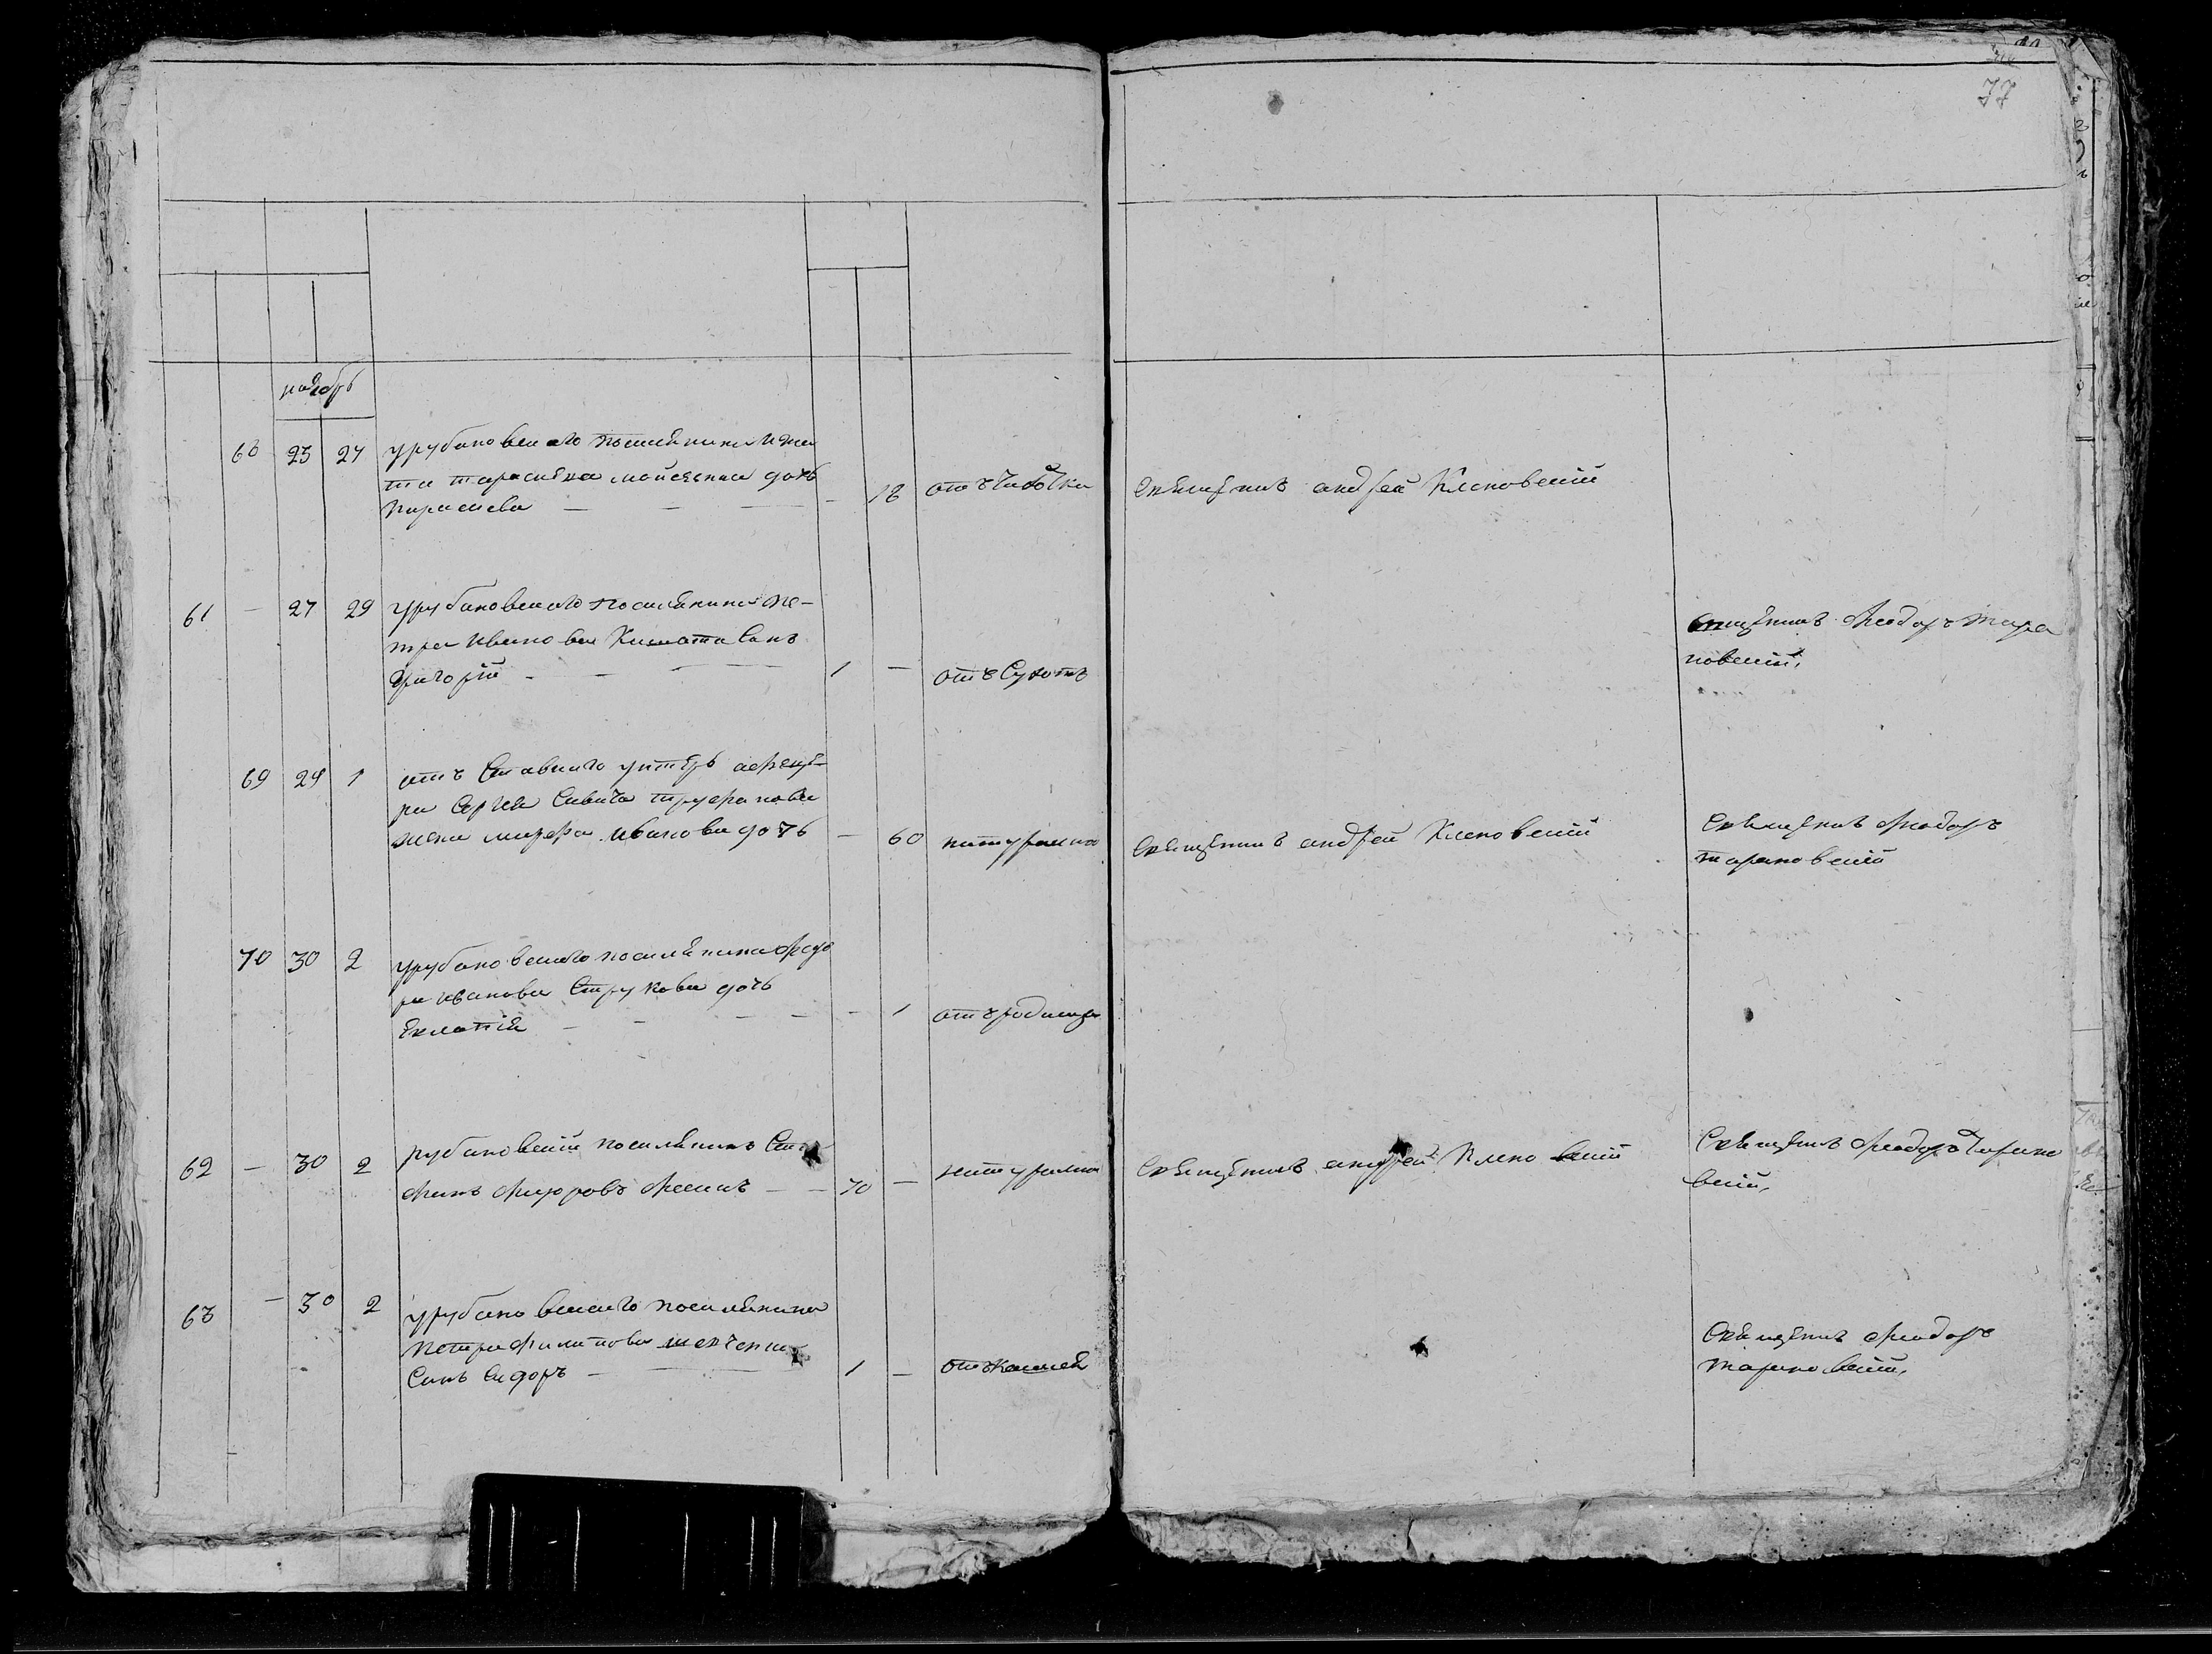 77
ноябрь
68 25 27 урубановскаго посилянина Игна
та тарасиева мойсеенка дочь
Параскева — — — — 18 отъ чахотки Священникъ андрей Кленовскій
61 — 27 29 урубановскаго посилянина Пе-
тра иванова Сынъ
Григорій — — — 1 — отъ Сухотъ Священникъ Феодоръ Тара
новскій,
69 29 1 унтеръ афице-
ра Сергея Савича труфанова
жена марфа иванова дочь — 60 натурално Священникъ андрей Кленовскій Священникъ Феодоръ
тарановскій
70 30 2 урубановскаго посилянина Федо
ра иванова Струкова дочь
— — — — — 1 отъ родимца
62 — 30 2 рубановскій посилянинъ
Федоровъ — — 70 — натурално Священникъ андрей Кленовскій Священникъ Феодоръ Тарано
вскій,
63 — 30 2 урубановскаго посилянина
петра филипова шевченка
Сынъ Сидоръ — — 1 — отъ кашля Священникъ Феодоръ
Тарановскій,